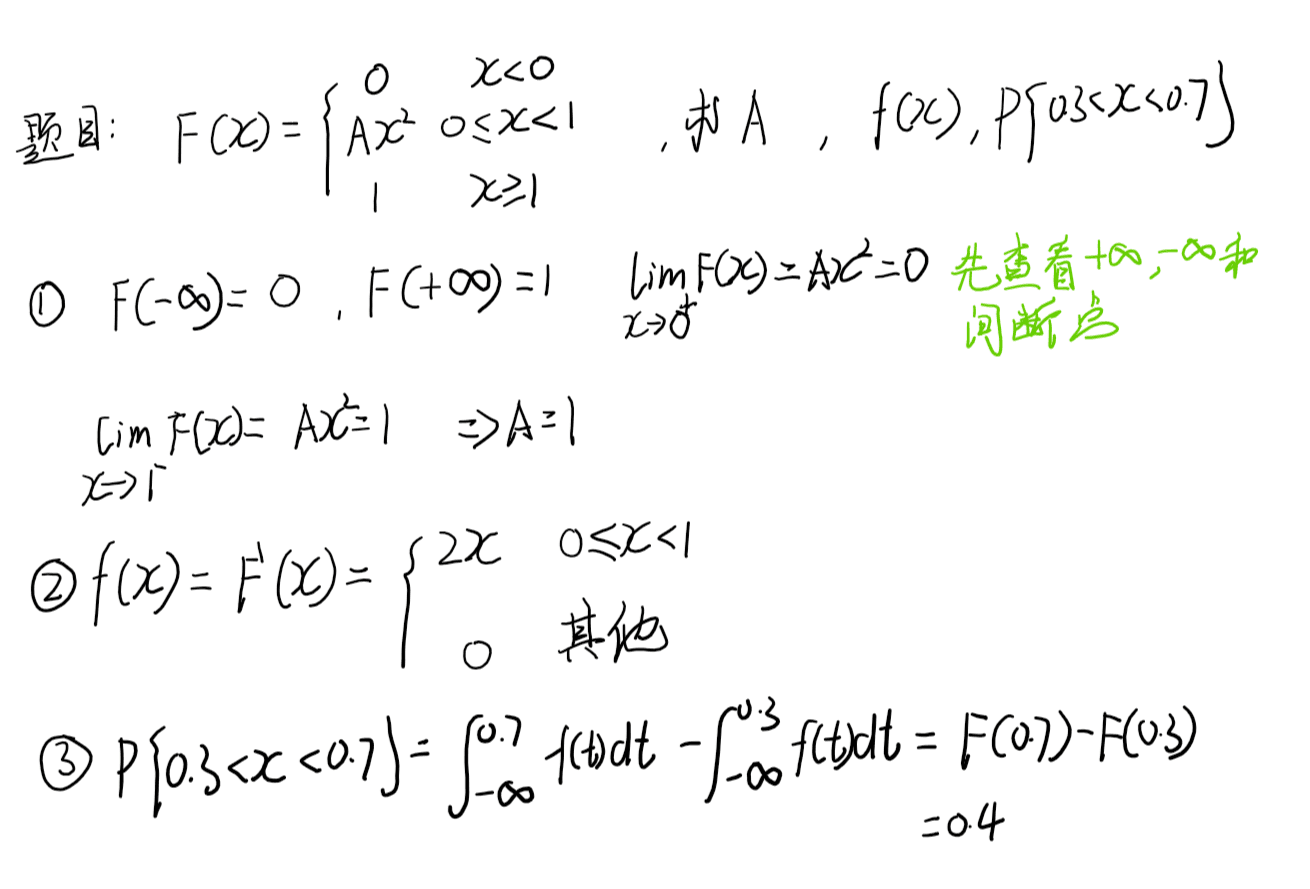 题目: F(x) = { 0 x<0
Ax² 0≤x<1 , 求A , f(x), P{0.3<x<0.7}
1 x≥1
① F(-∞)= 0 , F(+∞)=1 lim F(x)=Ax²=0 先查看+∞,-∞和
x→0⁺ 间断点
lim F(x)= Ax²=1 ⇒A=1
x→1⁻
② f(x) = F'(x) = { 2x 0≤x<1
0 其他
③ P{0.3<x<0.7}= ∫_{-∞}^{0.7} f(t)dt - ∫_{-∞}^{0.3} f(t)dt = F(0.7)-F(0.3)
=0.4